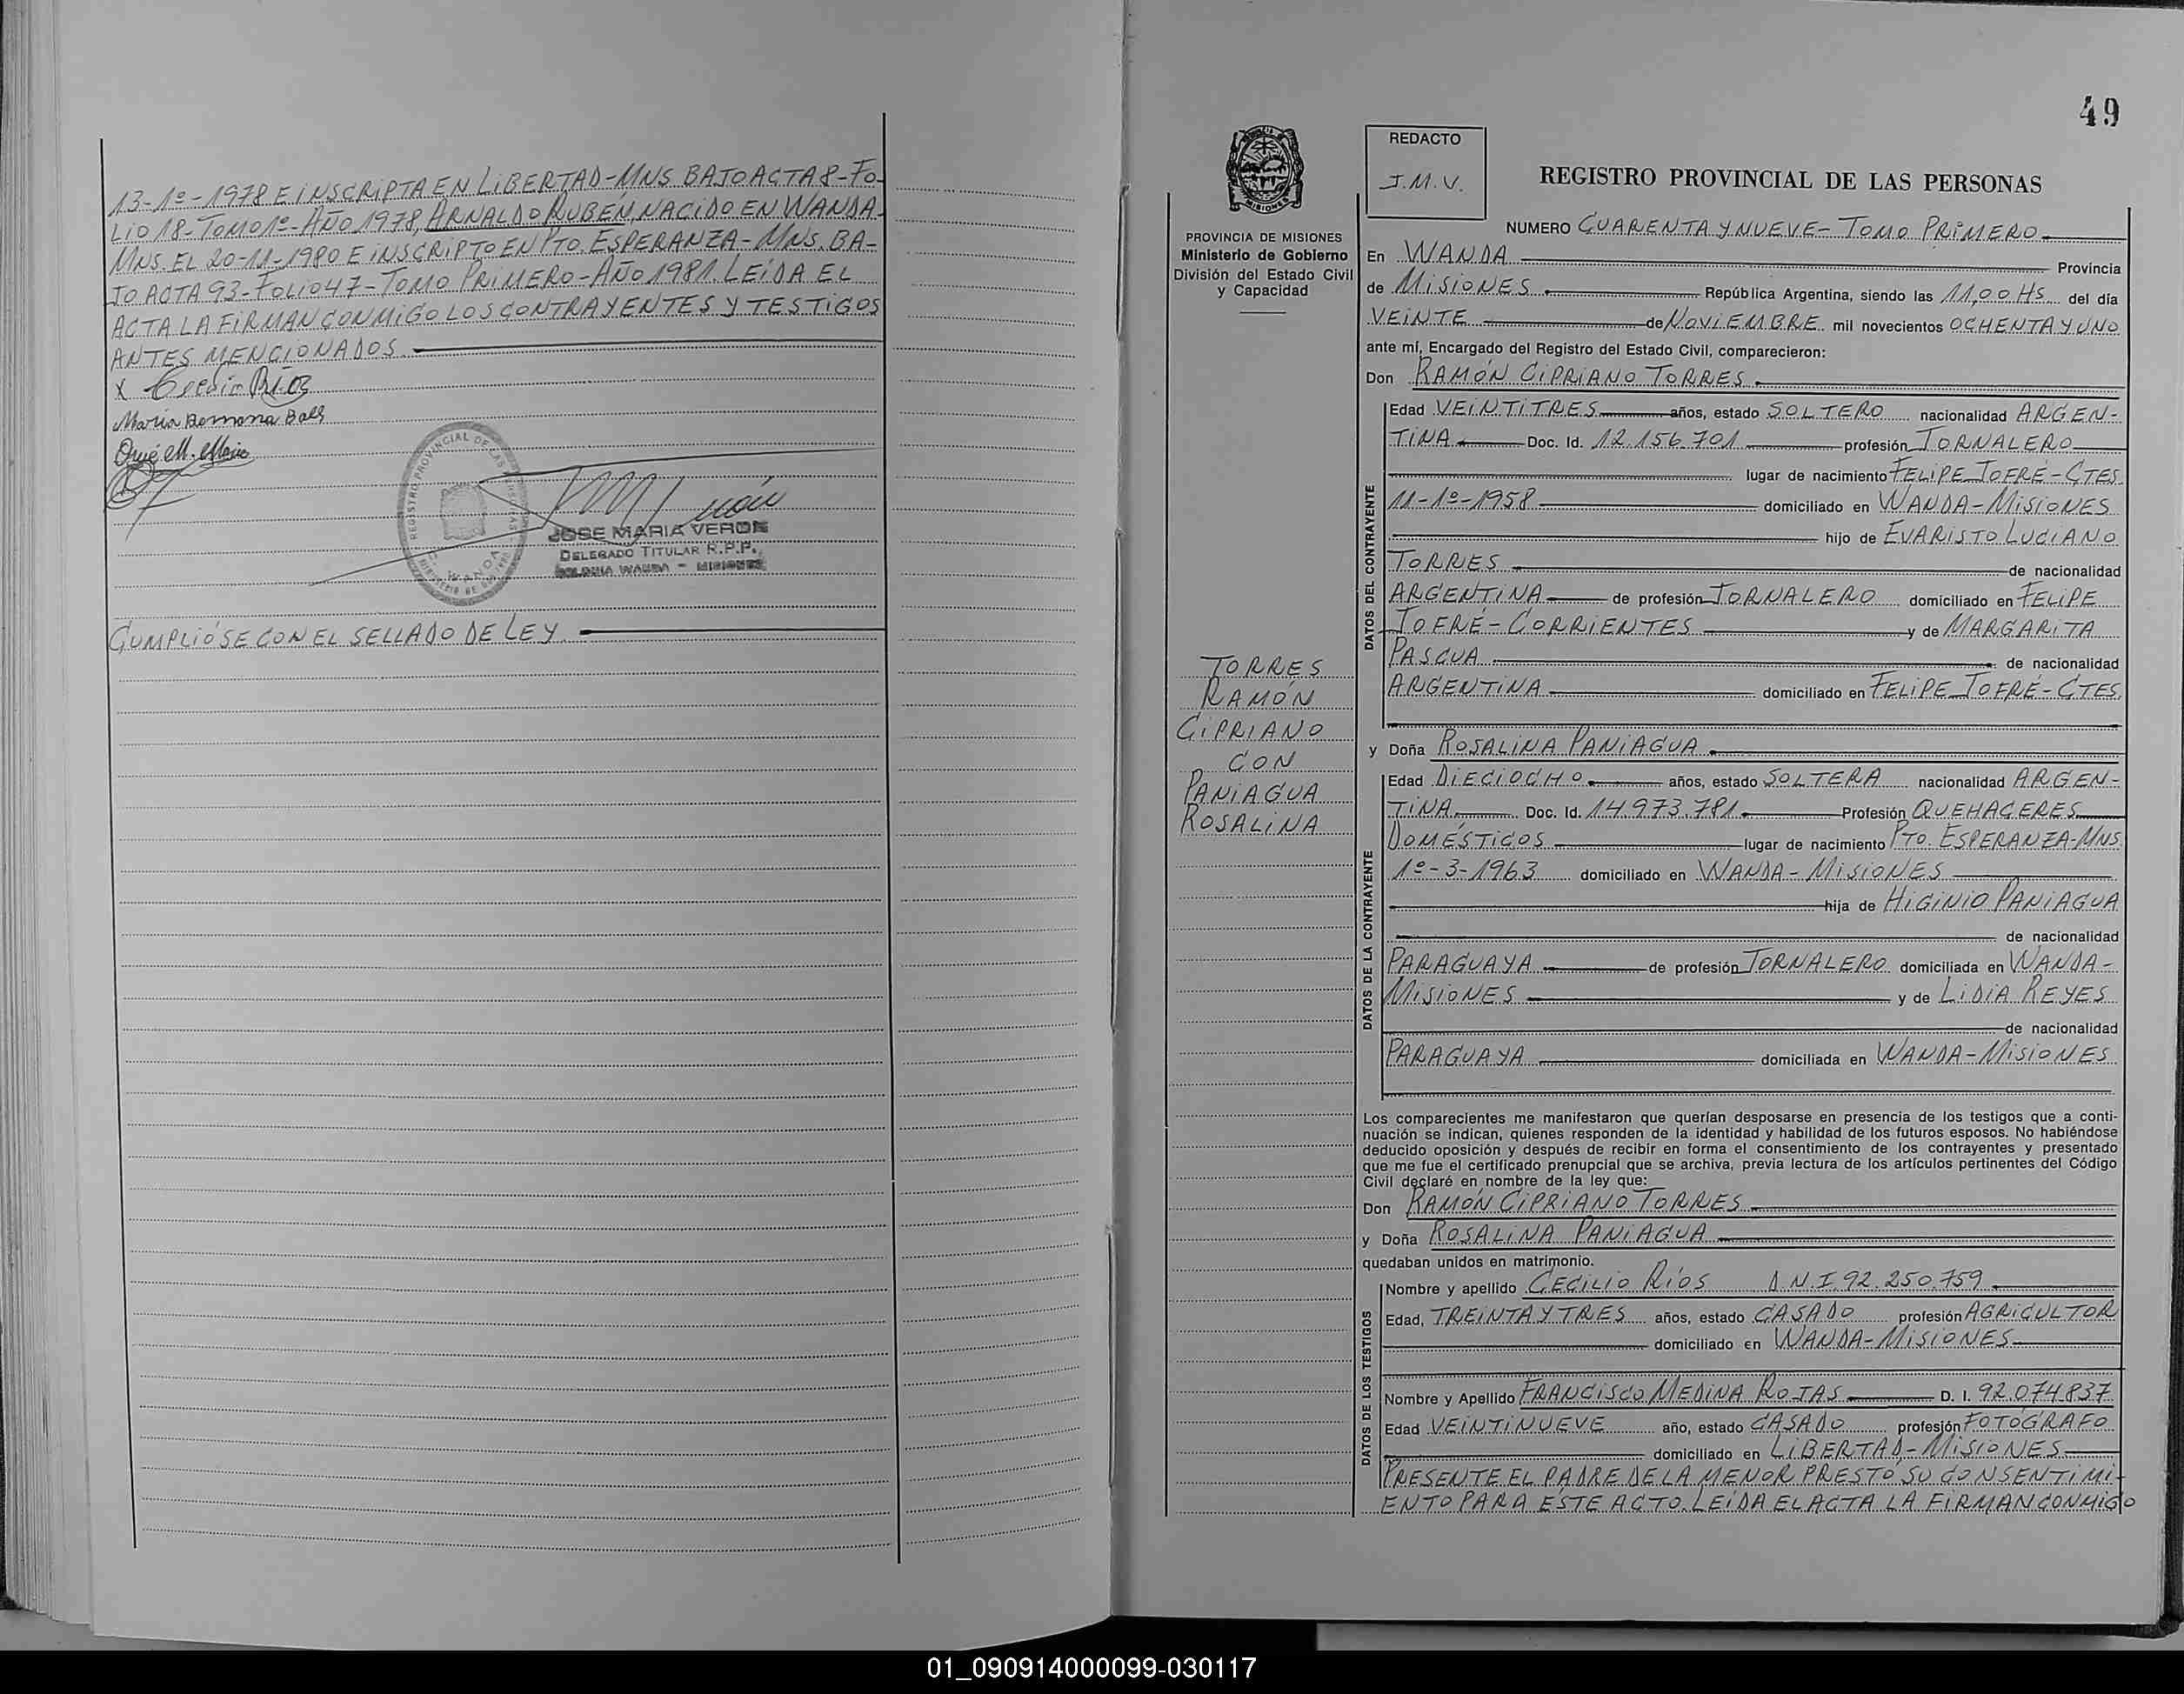 13-1º-1978 E INSCRIPTA EN LIBERTAD-MNS. BAJO ACTA 8-FO-
LIO 18-TOMO 1º-AÑO 1978, ARNALDO RUBÉN, NACIDO EN WANDA-
MNS. EL 20-11-1980 E INSCRIPTO EN PTO. ESPERANZA-MNS. BA-
JO ACTA 93-FOLIO 47-TOMO PRIMERO-AÑO 1981. LEÍDA EL
ACTA LA FIRMAN CONMIGO LOS CONTRAYENTES Y TESTIGOS
ANTES MENCIONADOS.
X
María Ramona
JOSE MARIA VERON
DELEGADO TITULAR R.P.P.
COLONIA WANDA - MISIONES
CUMPLIÓSE CON EL SELLADO DE LEY.
49
REDACTO
J.M.V.
REGISTRO PROVINCIAL DE LAS PERSONAS
PROVINCIA DE MISIONES
Ministerio de Gobierno
División del Estado Civil
y Capacidad
NUMERO CUARENTA Y NUEVE- TOMO PRIMERO.
En WANDA Provincia
de MISIONES República Argentina, siendo las 11,00 HS. del día
VEINTE de NOVIEMBRE mil novecientos OCHENTA Y UNO
ante mí, Encargado del Registro del Estado Civil, comparecieron:
Don RAMÓN CIPRIANO TORRES
DATOS DEL CONTRAYENTE
Edad VEINTITRES años, estado SOLTERO nacionalidad ARGEN-
TINA Doc. Id. 12.156.701 profesión JORNALERO
lugar de nacimiento FELIPE JOFRÉ-CTES
11-1º-1958 domiciliado en WANDA-MISIONES
hijo de EVARISTO LUCIANO
TORRES de nacionalidad
ARGENTINA de profesión JORNALERO domiciliado en FELIPE
JOFRÉ-CORRIENTES y de MARGARITA
PASCUA de nacionalidad
ARGENTINA domiciliado en FELIPE JOFRÉ-CTES.
TORRES
RAMÓN
CIPRIANO
CON
PANIAGUA
ROSALINA
y Doña ROSALINA PANIAGUA
DATOS DE LA CONTRAYENTE
Edad DIECIOCHO años, estado SOLTERA nacionalidad ARGEN-
TINA Doc. Id. 14.973.781 Profesión QUEHACERES
DOMÉSTICOS lugar de nacimiento PTO. ESPERANZA-MNS
1º-3-1963 domiciliado en WANDA-MISIONES
hija de HIGINIO PANIAGUA
de nacionalidad
PARAGUAYA de profesión JORNALERO domiciliada en WANDA-
MISIONES y de LIDIA REYES
de nacionalidad
PARAGUAYA domiciliada en WANDA-MISIONES
Los comparecientes me manifestaron que querían desposarse en presencia de los testigos que a conti-
nuación se indican, quienes responden de la identidad y habilidad de los futuros esposos. No habiéndose
deducido oposición y después de recibir en forma el consentimiento de los contrayentes y presentado
que me fue el certificado prenupcial que se archiva, previa lectura de los artículos pertinentes del Código
Civil declaré en nombre de la ley que:
Don RAMÓN CIPRIANO TORRES
y Doña ROSALINA PANIAGUA
quedaban unidos en matrimonio.
DATOS DE LOS TESTIGOS
Nombre y apellido CECILIO RÍOS D.N.I. 92.250.759
Edad, TREINTA Y TRES años, estado CASADO profesión AGRICULTOR
domiciliado en WANDA-MISIONES
Nombre y Apellido FRANCISCO MEDINA ROJAS D. I. 92.074.837
Edad VEINTINUEVE año, estado CASADO profesión FOTÓGRAFO
domiciliado en LIBERTAD-MISIONES
PRESENTE EL PADRE DE LA MENOR PRESTÓ SU CONSENTIMI-
ENTO PARA ÉSTE ACTO. LEÍDA EL ACTA LA FIRMAN CONMIGO
01_090914000099-030117